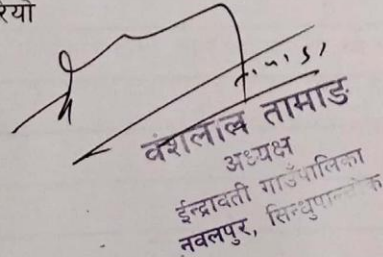 रियो
वंशलाल तामाङ
अध्यक्ष
ईन्द्रावती गाउँपालिका
नवलपुर, सिन्धुपाल्चोक